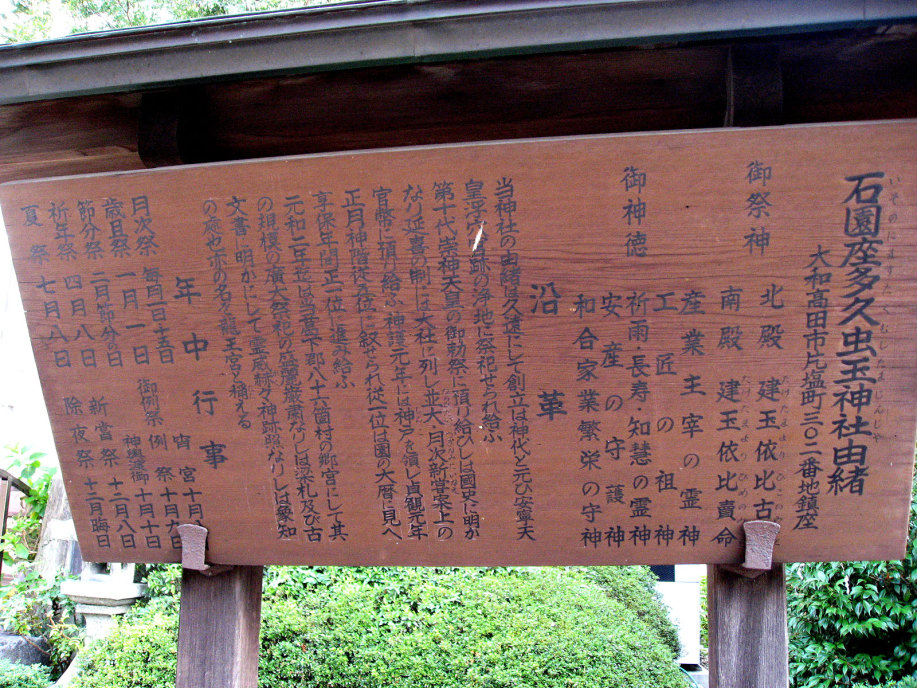 石園座多久虫玉神社由緒
いそのにますたくむしたまじんじゃ
大和高田市片塩町三〇二番地鎮座
御祭神
北殿 建玉依比古命
南殿 建玉依比賣命
御神徳
産業主宰の霊神
工匠の祖神
祈雨長寿・知慧の霊神
安産の守護神
和合家業繁栄の守神
沿革
当神社の由緒は久遠にして創立は神代と元ひ安寧天
皇宮跡の浄地に祭祀せられ給ふ
第十代崇神天皇の御勅祭に預り給ひしは國史に明か
なり延喜の制には大社に列し並大、月次新嘗案上の
官幣に預り給ふ神護元年には神戸を潰し貞観元年
正月神階従五位に敍せられ従一位は國の大暦に見へ
享保年間正一位に進み給ふ
元和二年葛下郡八十六箇村の郷宮にして其
の規模の廣大祭祀の荘厳嚴粛なりしは梁札及び古
文書に明かにして霊威赫々神跡なりしは衆知
の處や亦の名を龍王宮と稱える
年中行事
月次祭 毎月一日十五日
歳旦祭 一月一日
節分祭 二月節分の日
祈年祭 四月八日
夏祭 七月八日
宵宮 十月
例祭 十月
御例祭
神輿渡御 十月十六日
新嘗祭 十二月八日
除夜祭 十二月晦日